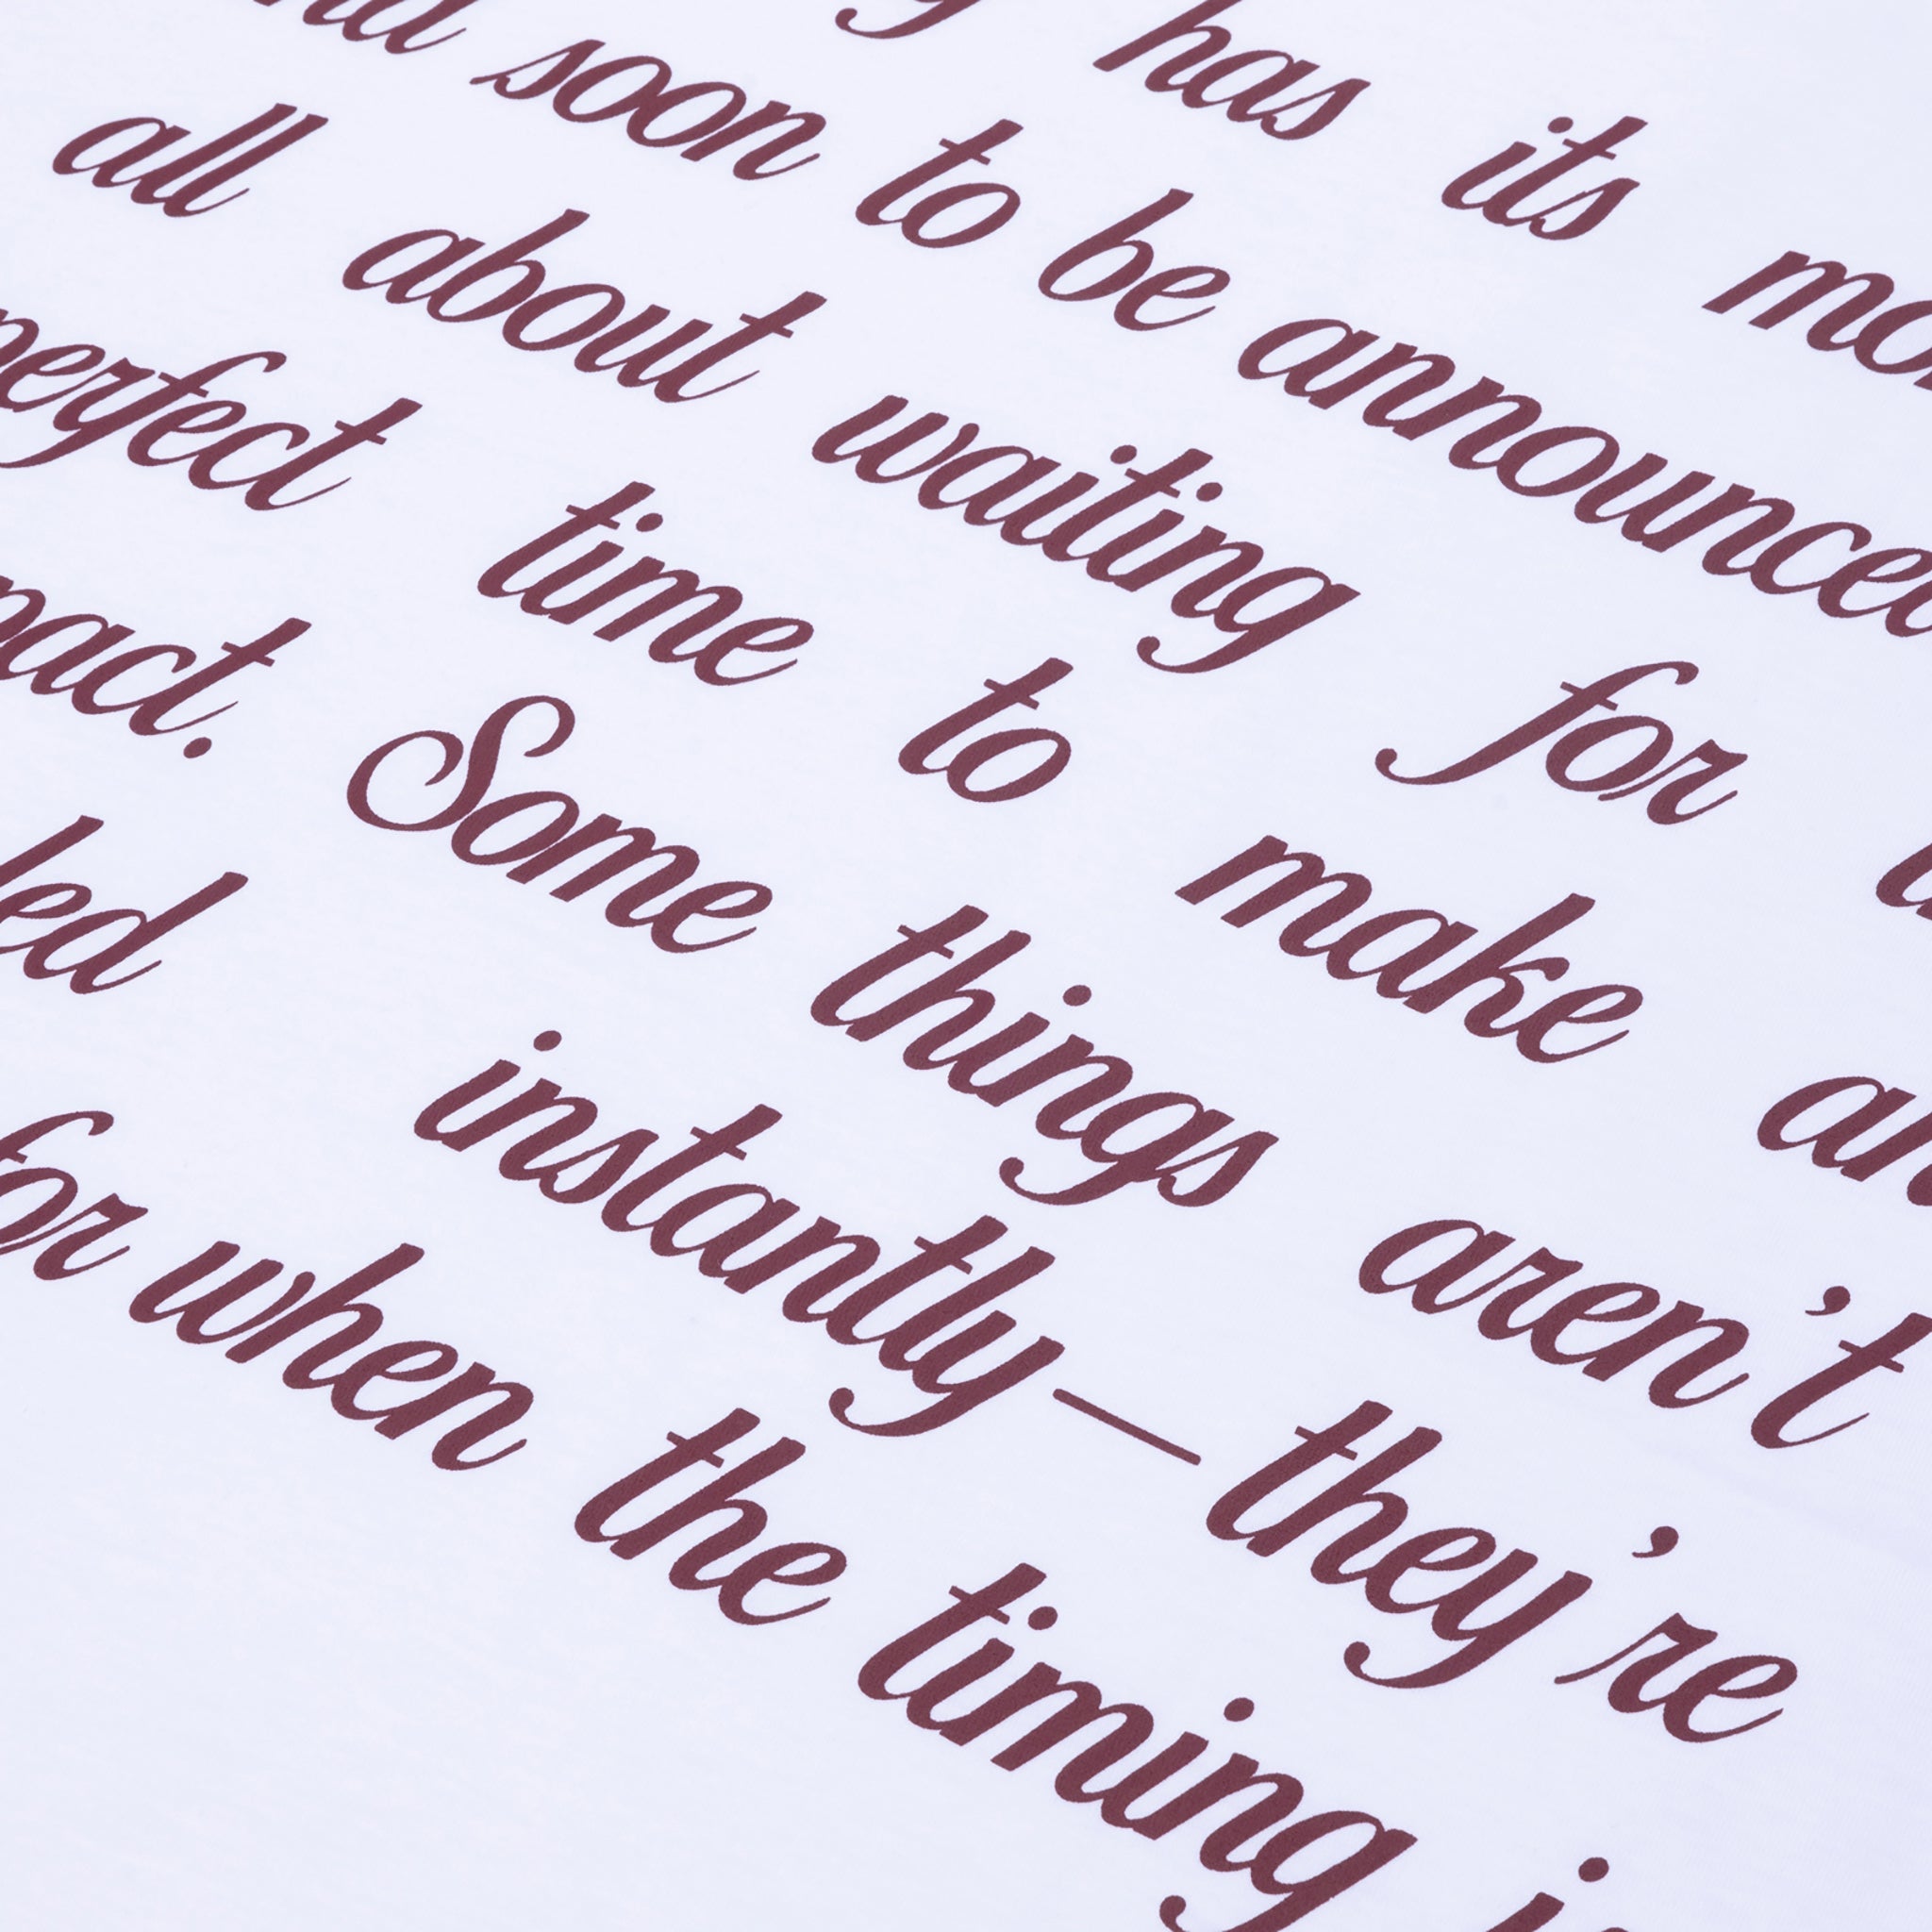 has its
soon to be announced
all about waiting for
perfect time to make
Some things aren't
instantly—they're
for when the timing